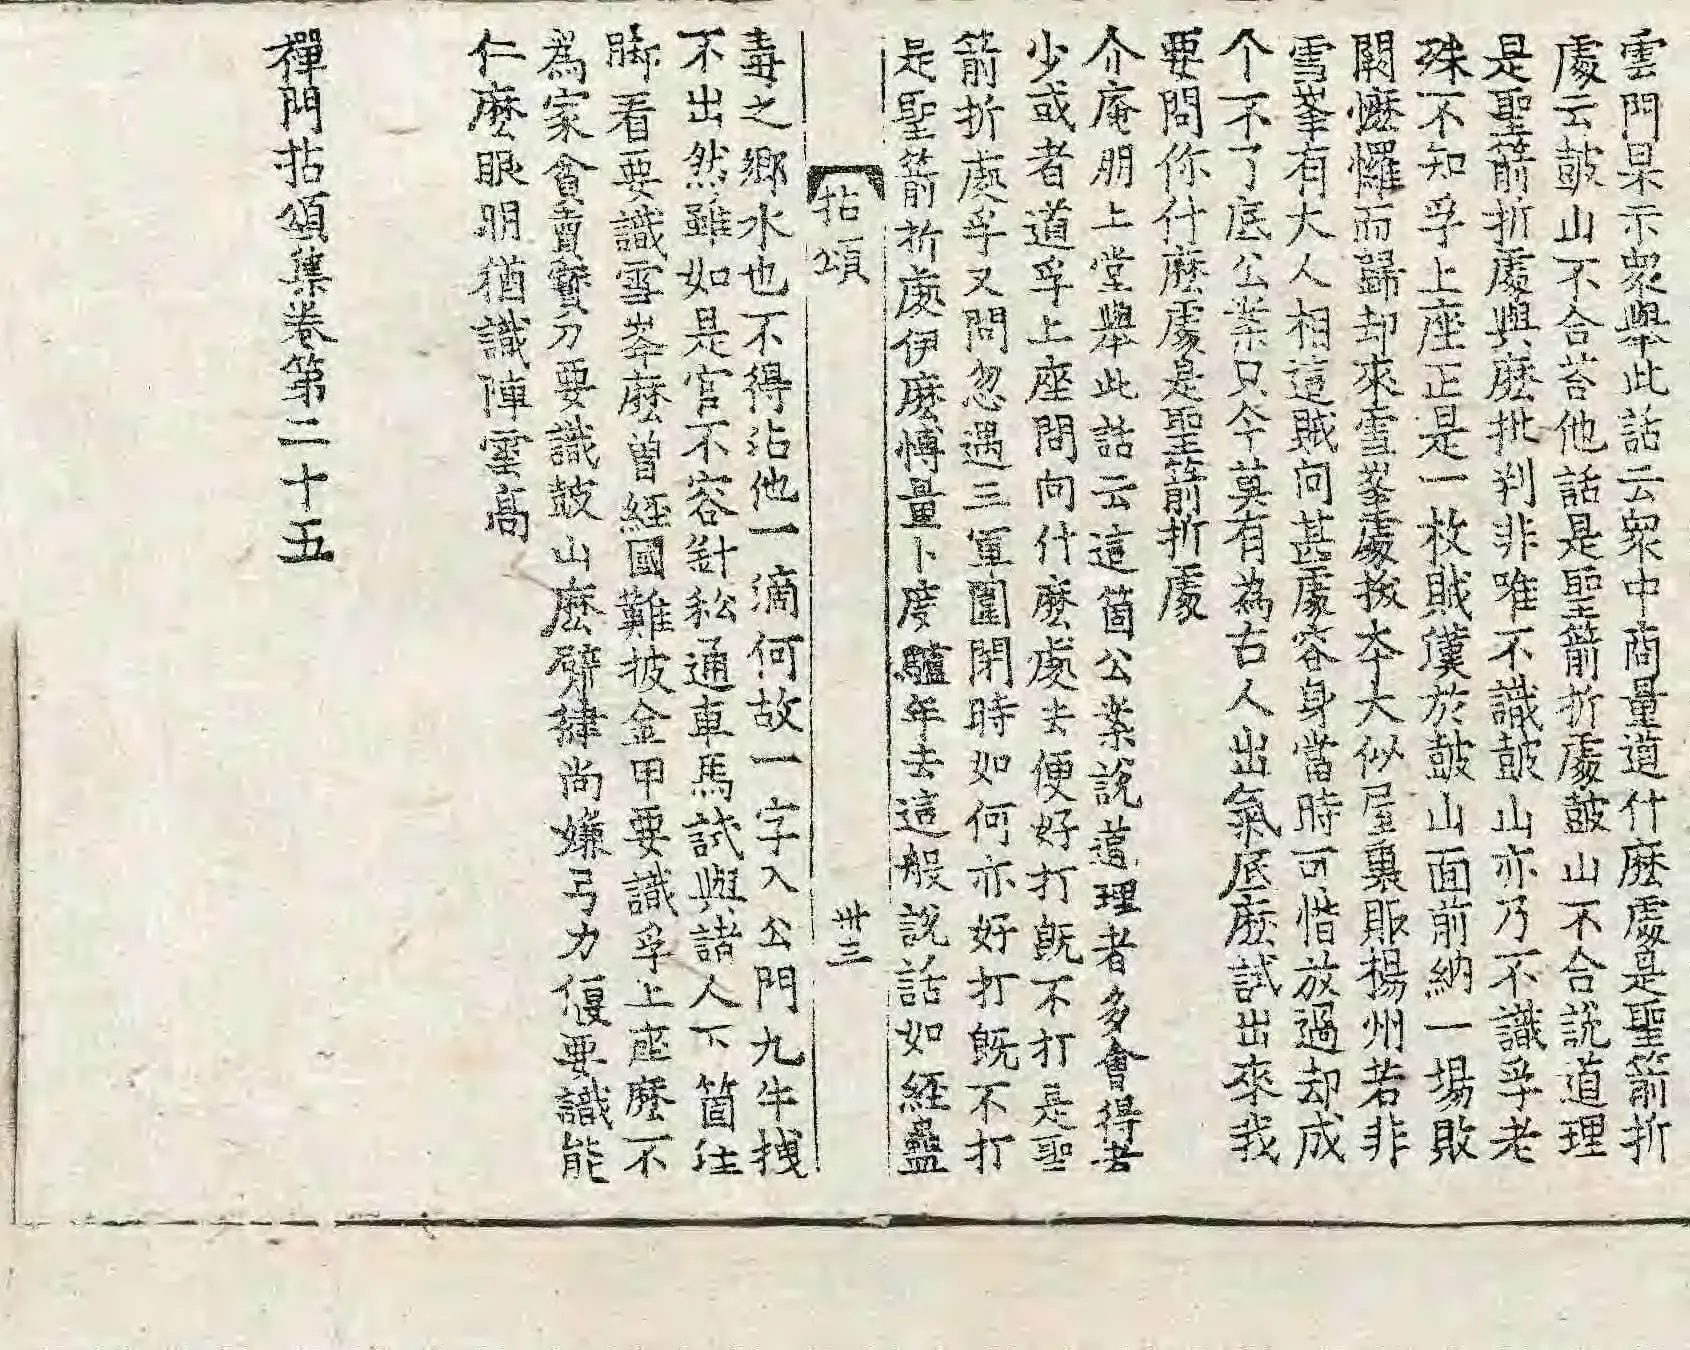 雲門杲示衆舉此話云衆中商量道什麽處是聖箭折
處云皷山不合荅他話是聖箭折處皷山不合說道理
是聖箭折處與麽批判非唯不識皷山亦乃不識孚老
殊不知孚上座正是一枚賊漢於皷山面前納一場敗
闕懡㦬而歸却來雪峯處拔本大似屋裏販揚州若非
雪峯有大人相這賊向甚處容身當時可惜放過却成
个不了底公案只今莫有為古人出氣底麽試出來我
要問你什麽處是聖箭折處
介庵朋上堂舉此話云這箇公案說道理者多會得者
少或者道孚上座問向什麽處去便好打旣不打是聖
箭折處孚又問忽遇三軍圍閉時如何亦好打旣不打
是聖箭折處伊麽愽量卜度驢年去這般說話如經蠱
拈頌 卅三
毒之鄉水也不得沾他一滴何故一字入公門九牛拽
不出然雖如是官不容針私通車馬試與諸人下箇注
脚看要識雪峯麽曾經國難披金甲要識孚上座麽不
為家貧賣寶刀要識皷山麽臂健尚嫌弓力偃要識能
仁麽眼明猶識陣雲高
禪門拈頌集卷第二十五